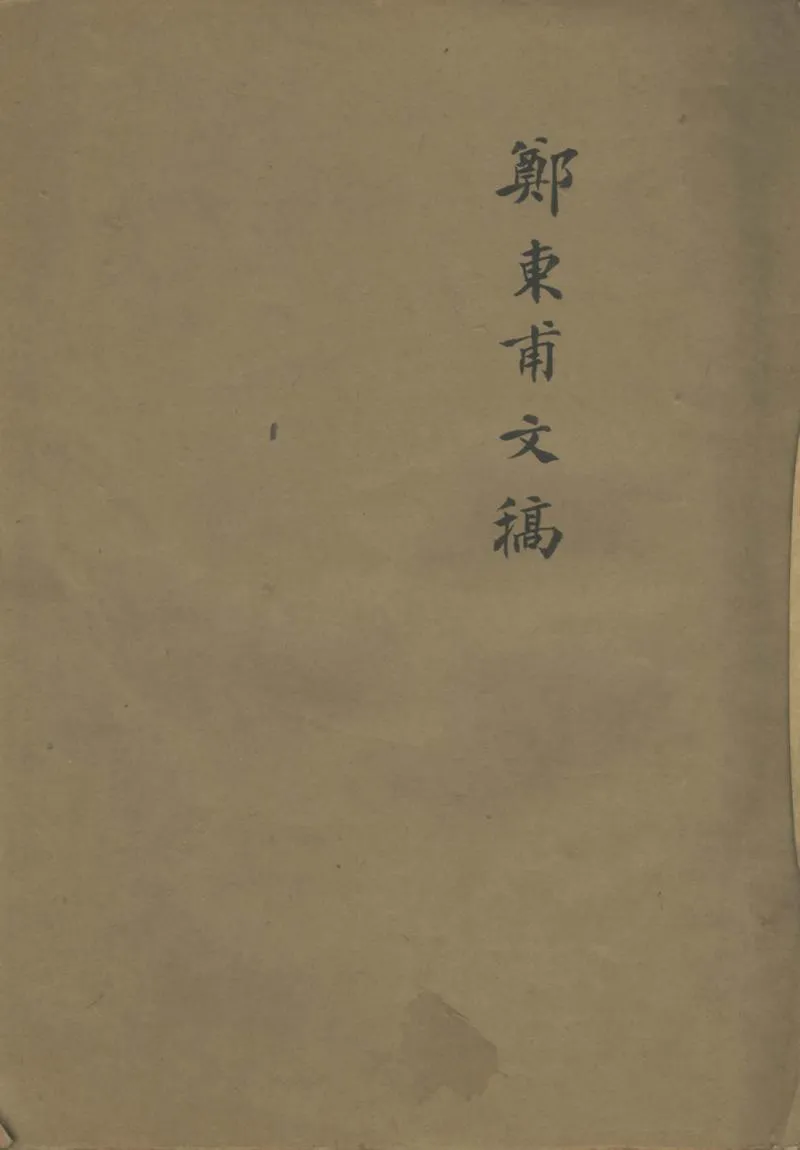 鄭東甫文稿